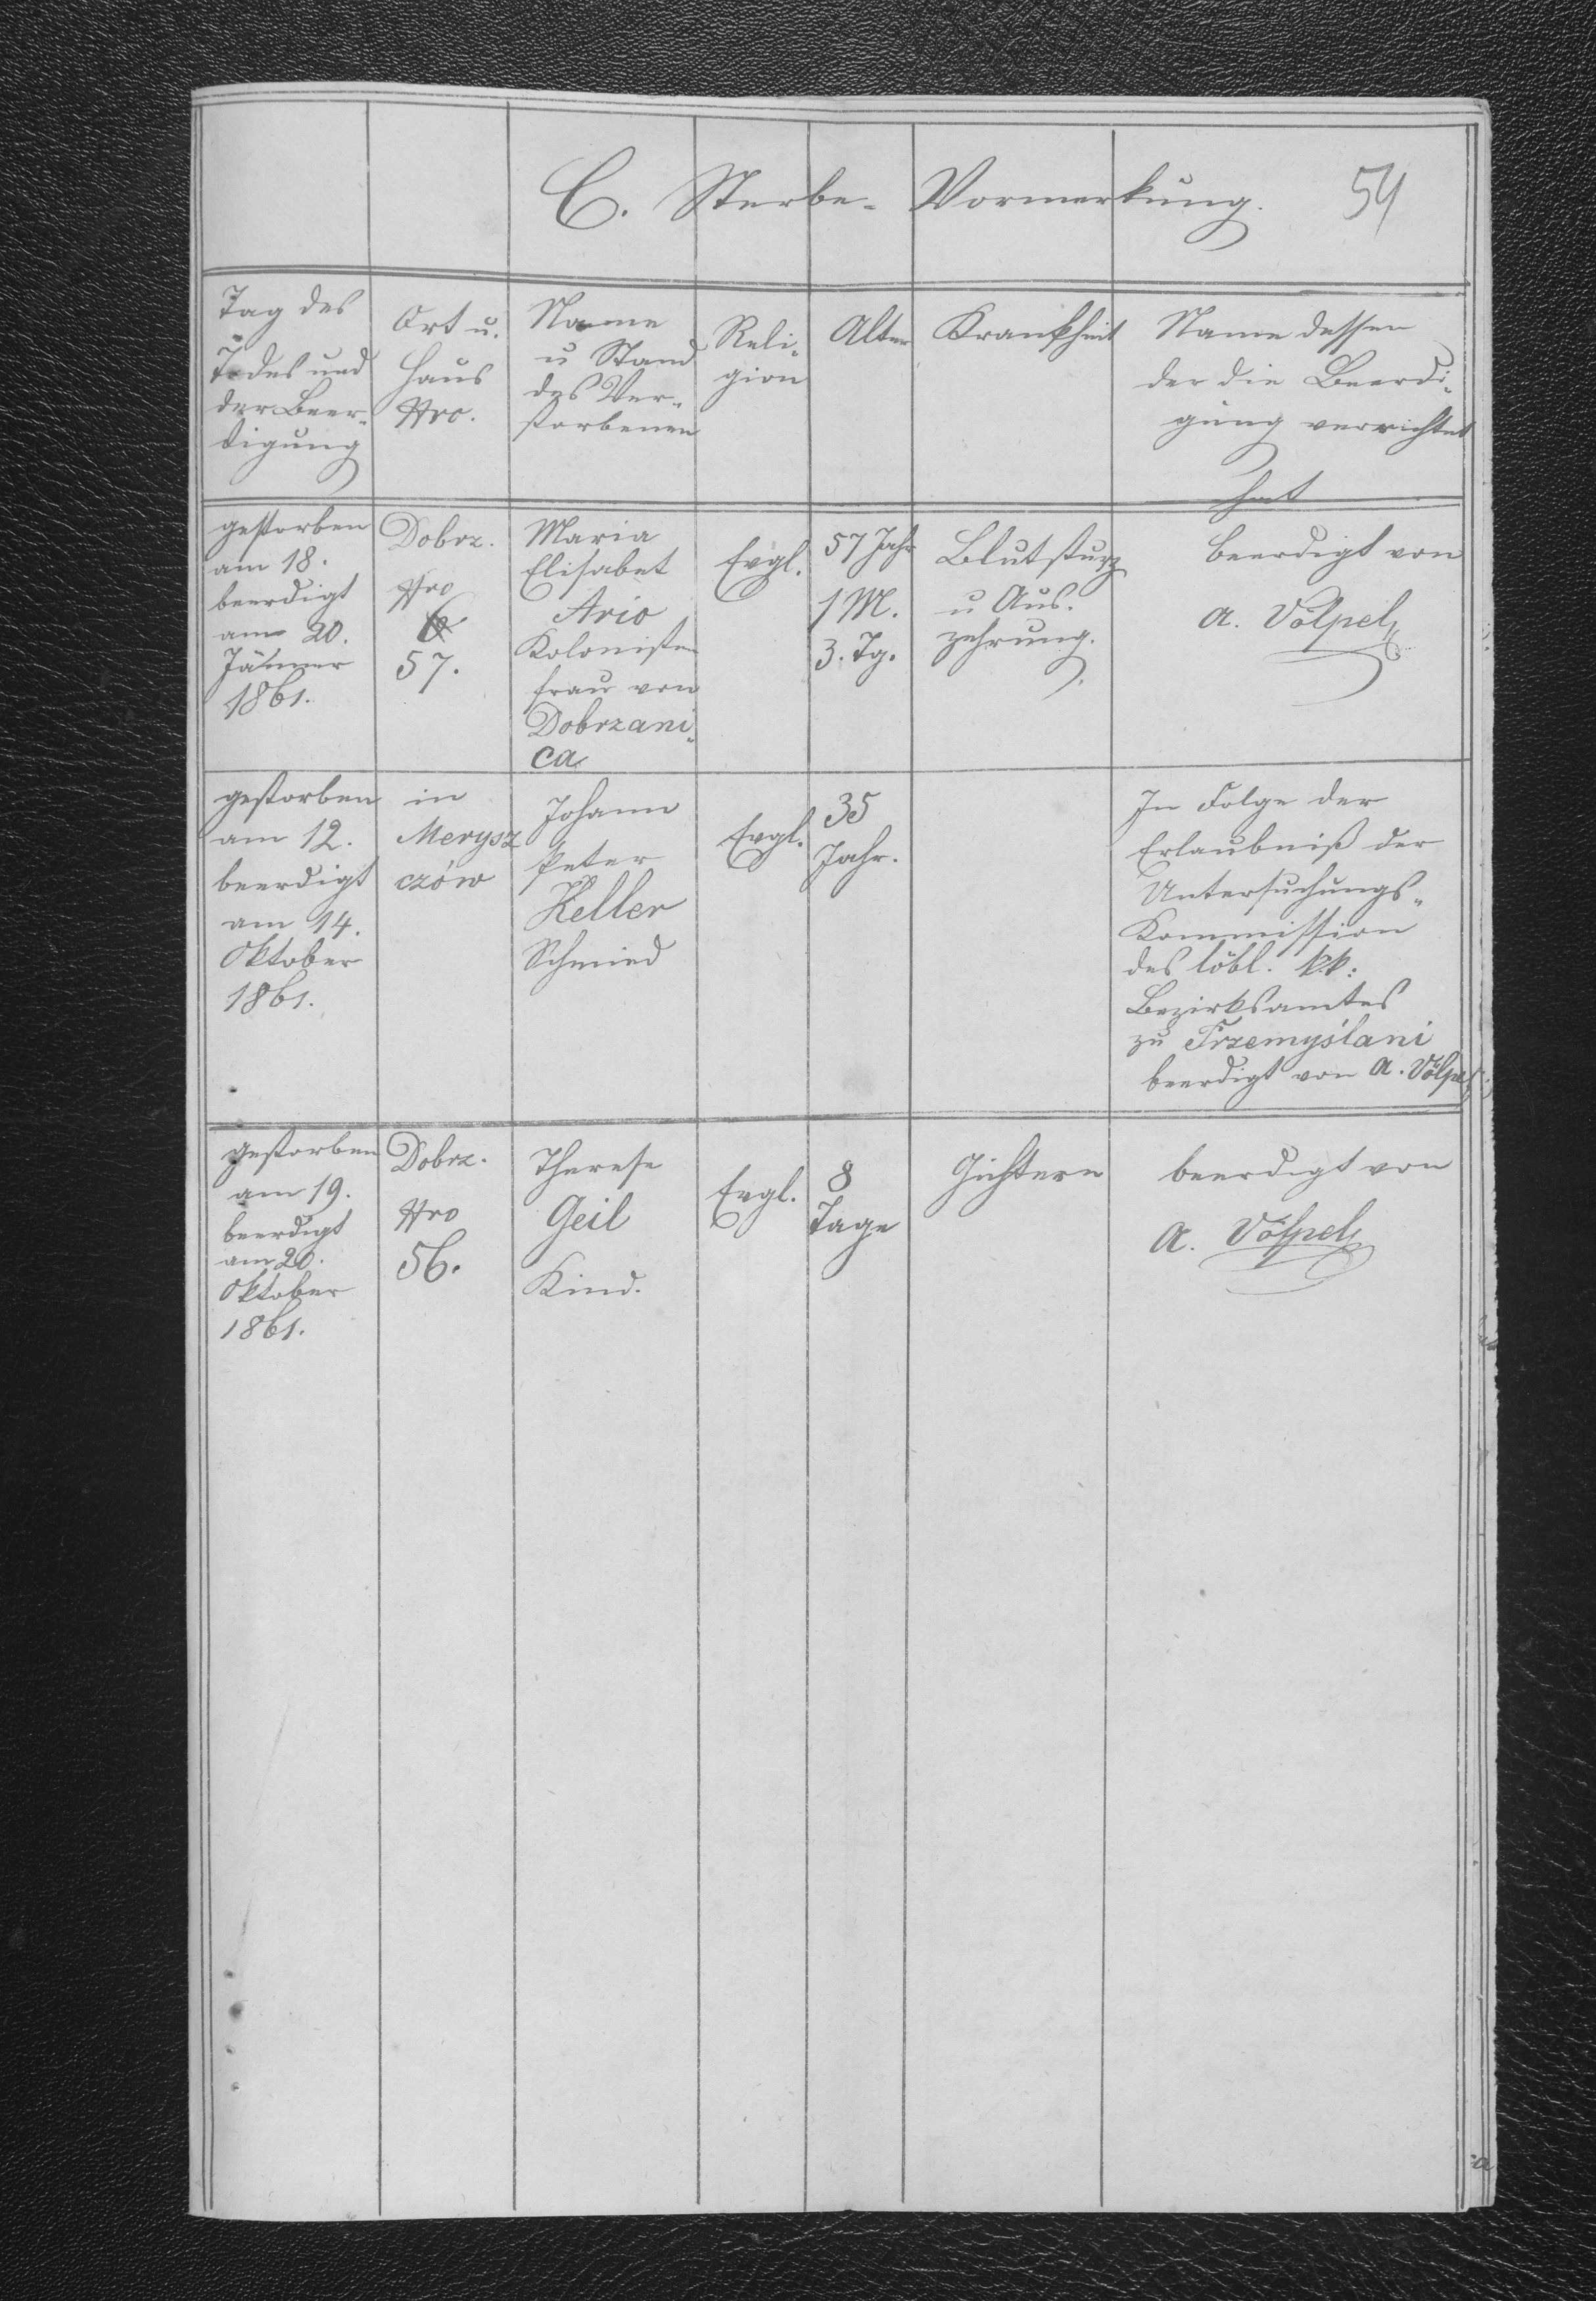 C. Sterbe- Vormerkung. 54
Tag des
Todes und
der Beer-
digung
Ort u.
Haus
Nro.
Name
u Stand
des Ver-
storbenen
Reli-
gion
Alter
Krankheit
Name dessen
der die Beerdi-
gung verrichtet
hat
gestorben
am 18.
beerdigt
am 20.
Jänner
1861.
Dobrz.
Nro
57.
Maria
Elisabet
Ario
Kolonisten
frau von
Dobrzani-
ca
Evgl.
57 Jahr
1 M.
3. Tg.
Blutsturz
u Aus-
zehrung.
beerdigt von
A. Völpel
gestorben
am 12.
beerdigt
am 14.
Oktober
1861.
in
Merysz
czów
Johann
Peter
Keller
Schmied
Evgl.
35
Jahr.
In Folge der
Erlaubniß der
Untersuchungs-
Kommission
des löbl. kk:
Bezirksamtes
zu Przemyślani
beerdigt von A. Völpel
gestorben
am 19.
beerdigt
am 20.
Oktober
1861.
Dobrz.
Nro
56.
Therese
Geil
Kind.
Evgl.
8
Tage
Gichtern
beerdigt von
A. Völpel